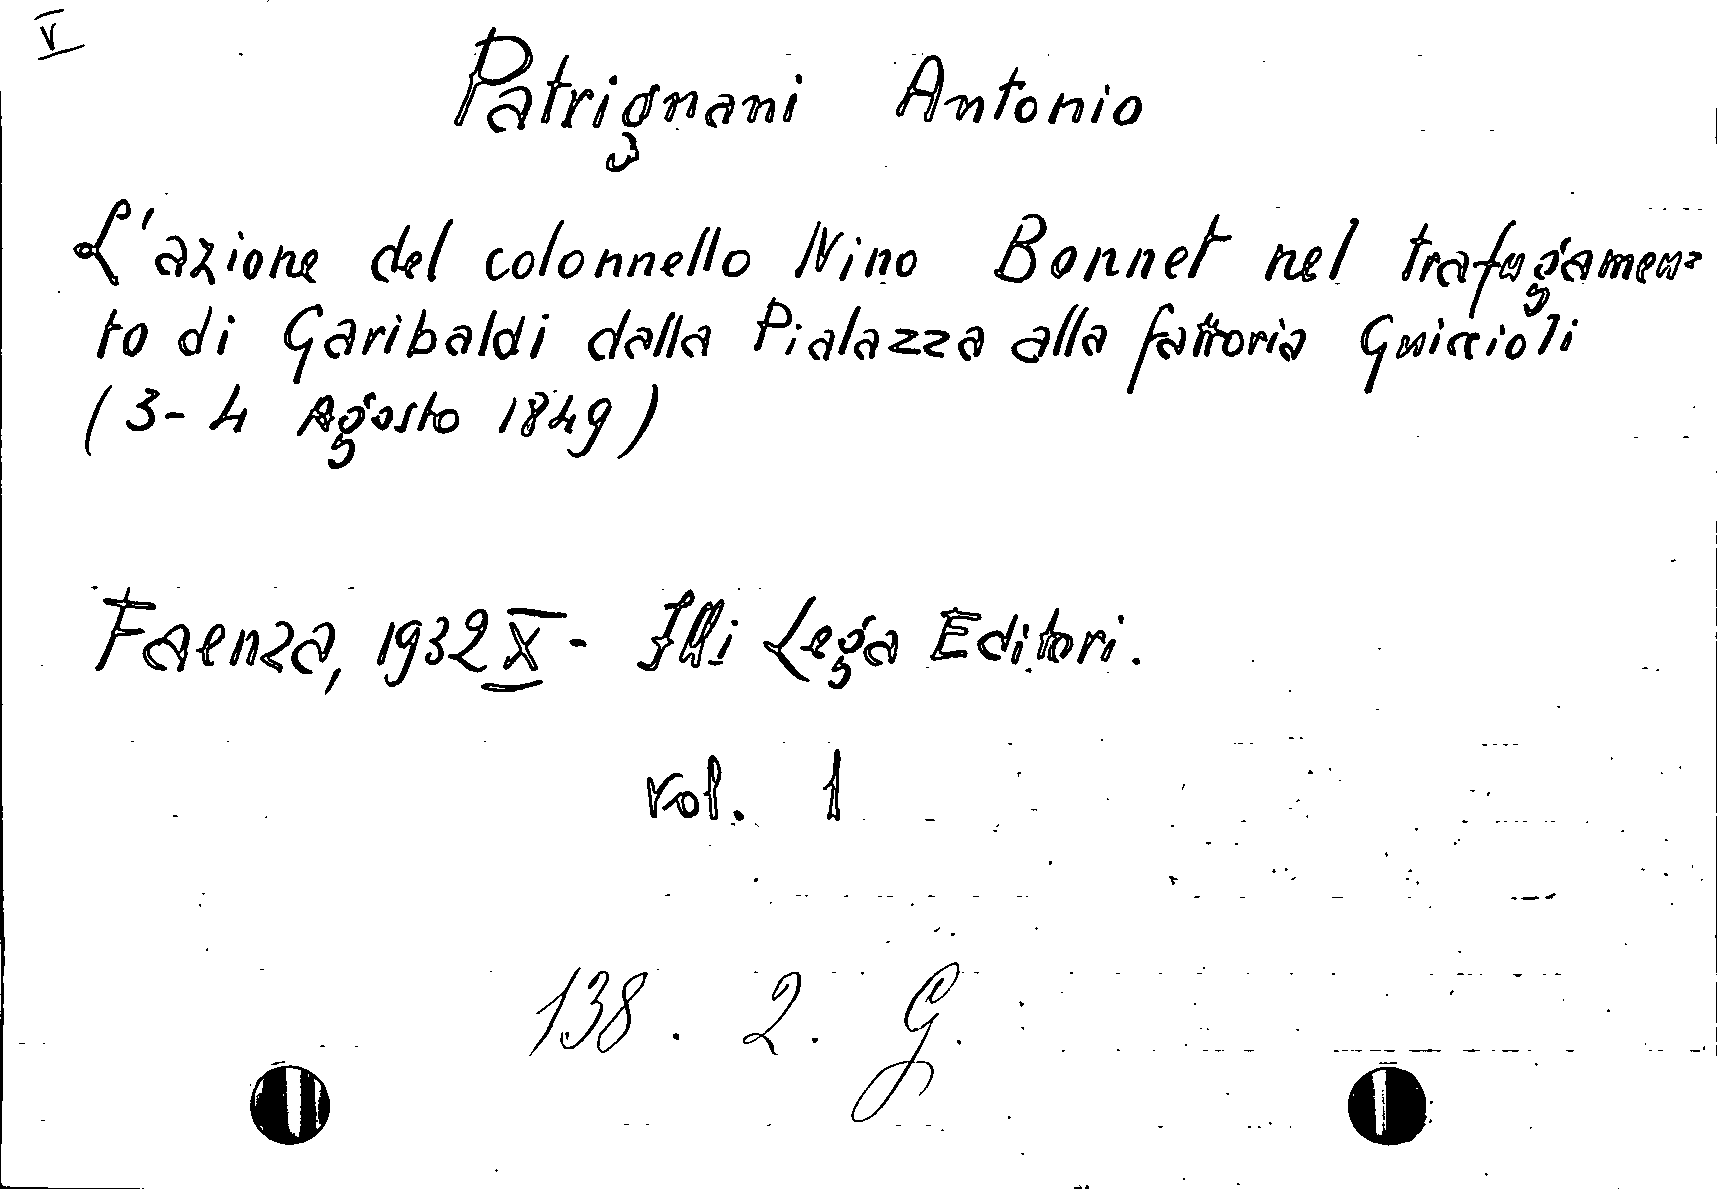 V
Patrignani Antonio
L'azione del colonnello Nino Bonnet nel trafugamen=
to di Garibaldi dalla Pialazza alla fattoria Guiccioli
(3-4 Agosto 1849)
Faenza, 1932 X - Flli Lega Editori.
vol. 1
138. 2. G.